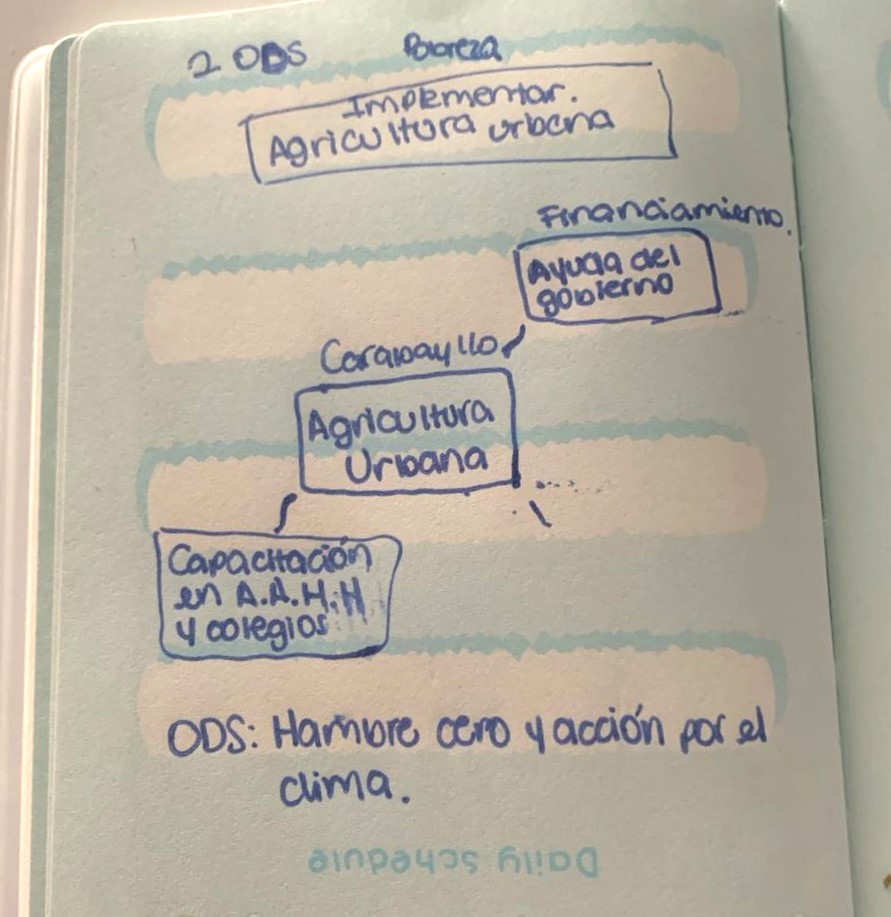 2 ODS Pobreza
Implementar.
Agricultura urbana
Financiamiento.
Ayuda del
gobierno
Carabayllo
Agricultura
Urbana
Capacitación
en A.A.H.H
y colegios
ODS: Hambre cero y acción por el
clima.
Daily schedule